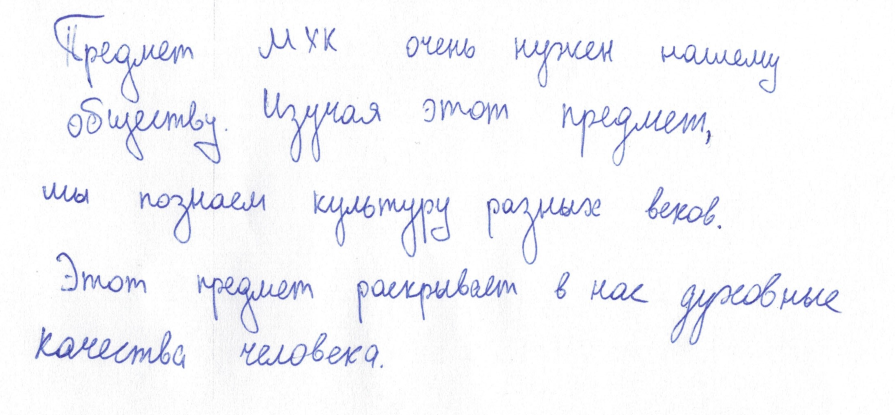 Предмет МХК очень нужен нашему
обществу. Изучая этот предмет,
мы познаем культуру разных веков.
Этот предмет раскрывает в нас духовные
качества человека.